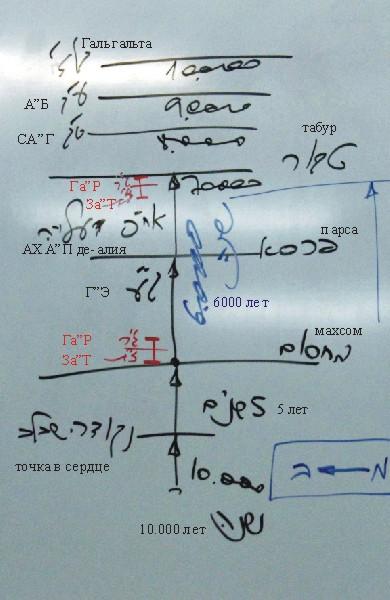 Гальгальта
10.000
А"Б ע"ב 9.000
СА"Г ס"ג 8.000
табур
טבור
Га"Р ג"ר 7000
За"Т ז"ת
парса
АХ А"П де-алия
פרסא
Г"Э ג"ע
6000 лет
махсом
Га"Р ג"ר
מחסום
За"Т ז"ת
5 שנים 5 лет
נקודה שבלב
точка в сердце
10.000
10.000 лет